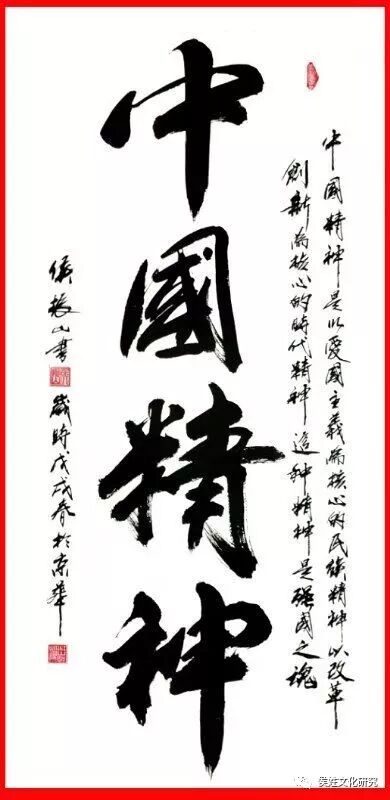 中國精神是以愛國主義為核心的民族精神以改革
創新為核心的時代精神這种精神是强國之魂
中國精神
侯山書 歲時戊戌春於京華
侯姓文化研究